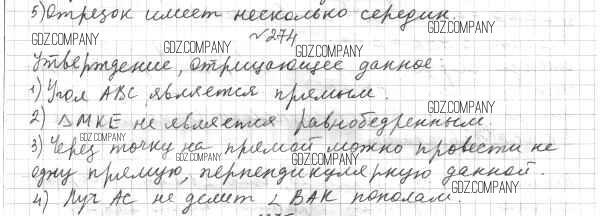 5) Отрезок имеет несколько середин.
№274
GDZ.COMPANY GDZ.COMPANY GDZ.COMPANY GDZ.COMPANY
Утверждение, отрицающее данное:
1) Угол ABC является прямым.
GDZ.COMPANY
2) ΔMKE не является равнобедренным.
GDZ.COMPANY
3) Через точку на прямой можно провести не
GDZ.COMPANY GDZ.COMPANY
одну прямую, перпендикулярную данной.
GDZ.COMPANY
4) Луч AC не делит ∠BAK пополам.